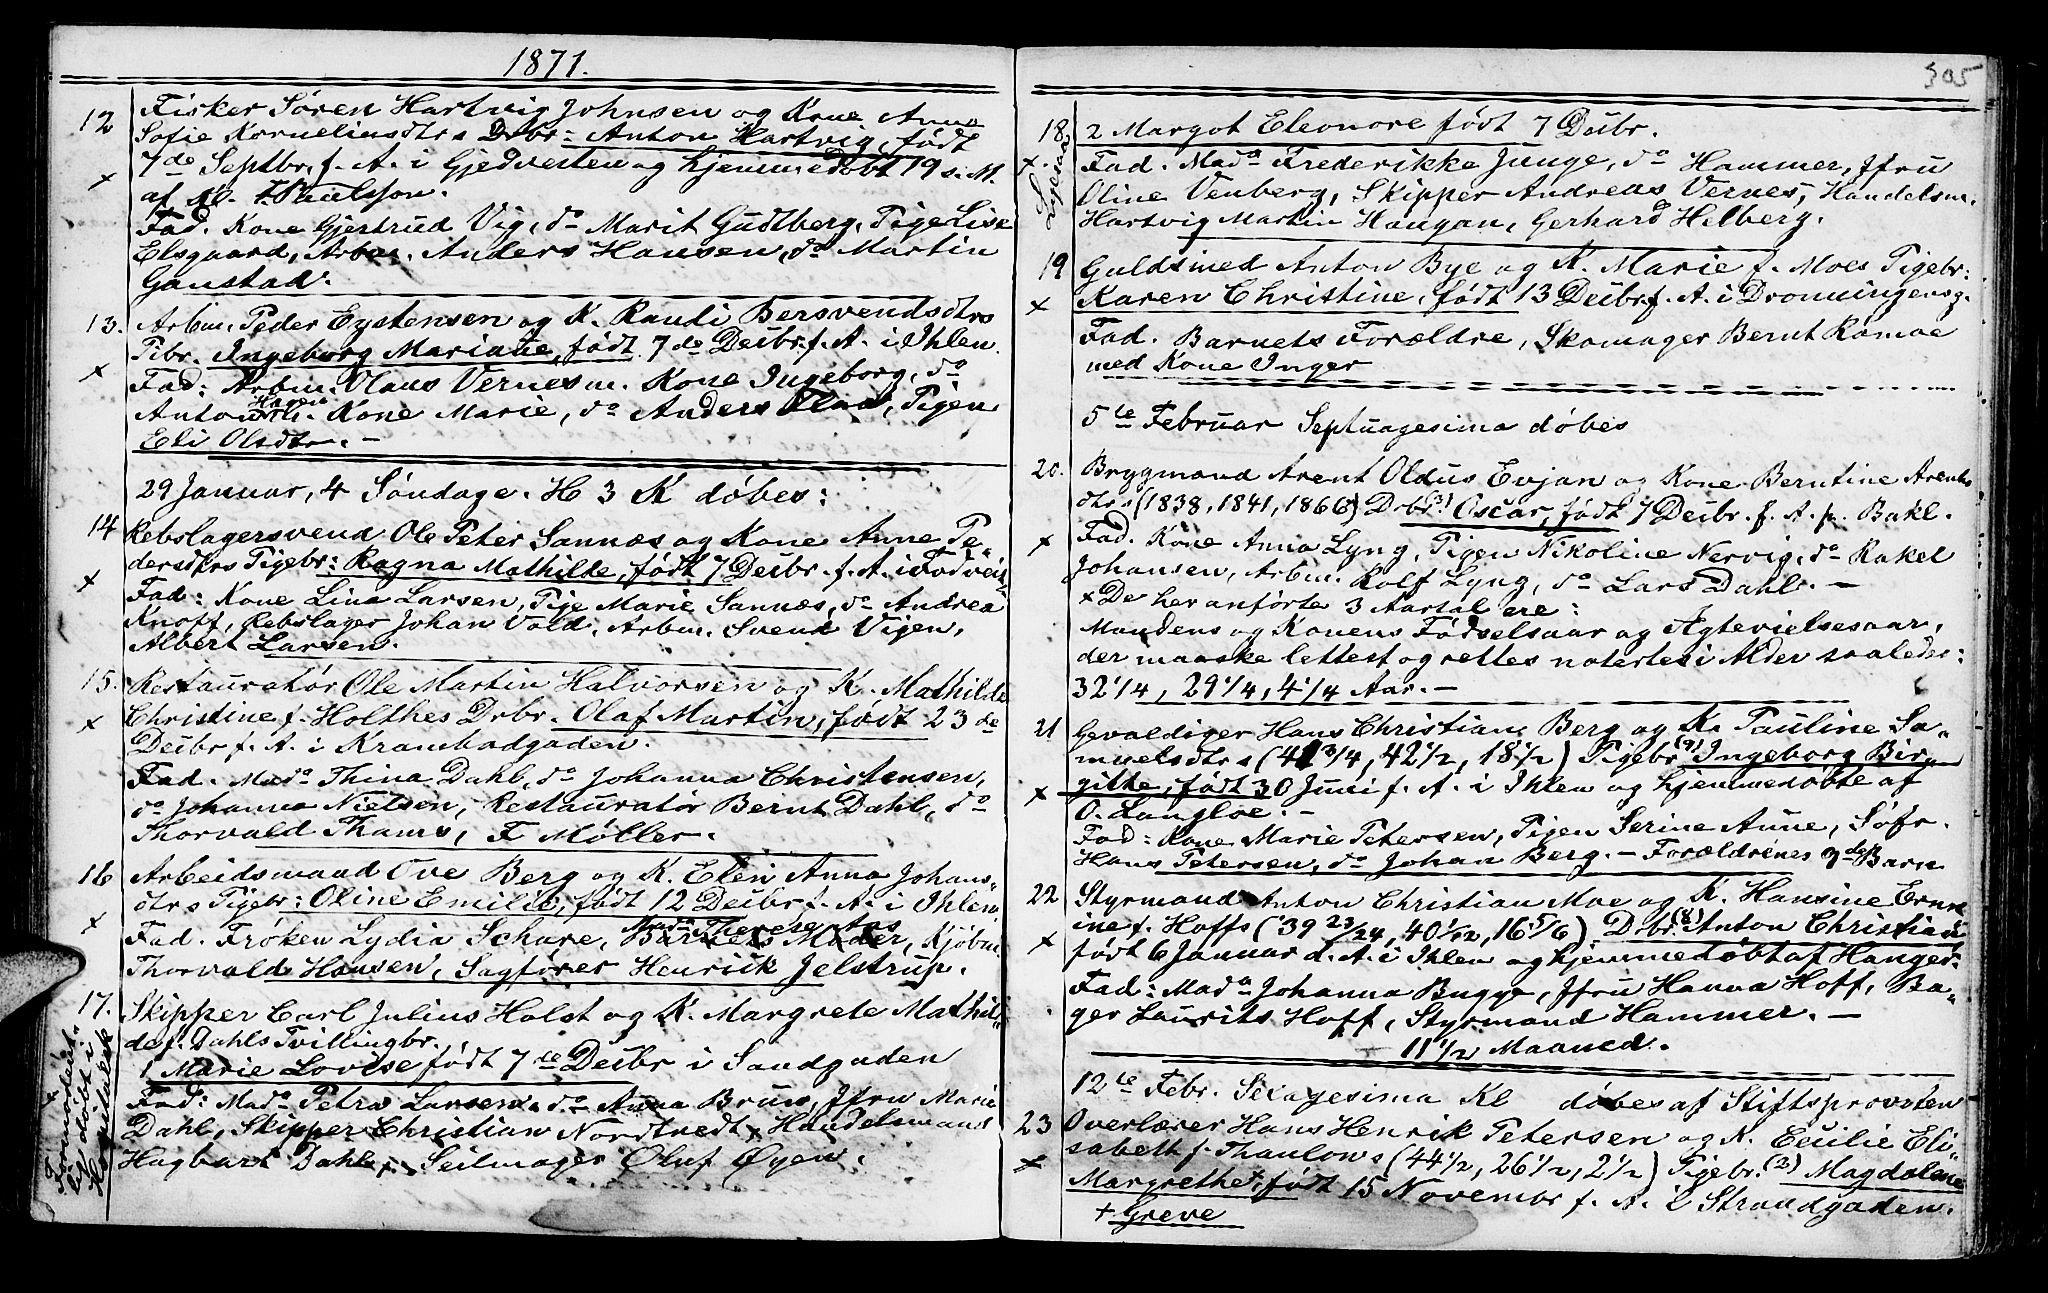 1871.
12 Fisker Sören Hartvig Johnsen og Kone Anna
Sofie Korneliusdtrs Drbr: Anton Hartvig, født
7de Septbr. f. A. i Gjedvesten og hjemmedøbt 19 s. M.
af Kl. F. Paulsson.
Fad. Kone Gjertrud Vig, do Marit Gudtberg, Pige Lise
Elsgaard, Arbm. Anders Hansen, do Martin
Ganstad.
13. Arbm. Peder Eystensen og K. Randi Bersvendsdtrs
Pibr. Ingeborg Mariane, født 7de Decbr. f. A. i Ihlen.
Fad: Arbm. Olaus Vernes m. Kone Ingeborg, do
Anton Hagen m. Kone Marie, do Anders Flaa, Pigen
Eli Olsdtr. –
29 Januar, 4 Søndag e. H 3 K døbes:
14 Rebslagersvend Ole Peter Sannæs og Kone Anne Pe-
dersdtrs Pigebr: Ragna Mathilde, født 7 Decbr. f. A. i Fodveit
Fad: Kone Lina Larsen, Pige Marie Sannæs, do Andrea
Knoff, Rebslager Johan Vold, Arbm. Svend Vigen,
Albert Larsen.
15. Restauratør Ole Martin Halvorsen og K. Mathilde
Christine f. Holthes Drbr. Olaf Martin, født 23de
Decbr f. A. i Krambodgaden.
Fad. Mada Thina Dahl, do Johanna Christensen,
do Johanna Nielsen, Restauratør Bernt Dahl, do
Thorvald Thams, F Møller.
16 Arbeidsmand Ove Berg og K. Elen Anna Johans-
dtrs Pigebr: Oline Emilie, født 12 Decbr f. A. i Ihlen
Mada Therese
Fad. Frøken Lydia Schare, Barnets Moder, Kjøbm.
Thorvald Hansen, Sagfører Henrik Jelstrup.
17. Skipper Carl Julius Holst og K. Margrete Mathil-
de f. Dahls Tvillingbr.
1 Marie Lovise født 7de Decbr i Sandgaden
Fad: Mada Petra Larsen, do Anna Bruun, Jfru Marie
Dahl, Skipper Christian Nordtvedt, Handelsmand
Hagbart Dahl, Seilmager Oluf Øyen.
døbt i
Hospitalet
305
18 2 Margot Eleonore født 7 Decbr.
Fad. Mada Frederikke Junge, do Hammer, Jfru
Oline Venberg, Skipper Andreas Vernes, Handelsm.
Hartvig Martin Haugan, Gerhard Helberg.
19 Guldsmed Anton Bye og K. Marie f. Moes Pigebr:
Karen Christine, født 13 Decbr. f. A. i Dronningensg.
Fad. Barnets Forældre, Skomager Bernt Ramoe
med Kone Inger
5te Februar Septuagesima døbes
20. Brygmand Arent Oldus Evjan og Kone Berntine Arents
dtrs (1838, 1841, 1866) Drbr (3) Oscar, født 7 Decbr. f. A. p. Bakl.
Fad. Kone Anna Lyng, Pigen Nikoline Nervig, do Rakel
Johansen, Arbm. Rolf Lyng, do Lars Dahl. –
× De her anførte 3 Aartal ere:
Mandens og Konens Fødselsaar og Ægtevielsesaar,
der maaske lettest og rettes noteres i Alder saaledes:
32 1/4, 29 1/4, 4 1/4 Aar. –
21 Gevaldiger Hans Christian Berg og K. Pauline Sa-
muelsdtrs (41 3/4, 42 1/2, 18 1/2) Pigebr (9) Ingeborg Bir-
gitte, født 30 Juni f. A. i Ihlen og hjemmedøbte af
O. Langloe. –
Fad: Kone Marie Petersen, Pigen Serine Anne, Søfr.
Hans Petersen, do Johan Berg. – Forældrenes 9de Barn
22 Styrmand Anton Christian Moe og K. Hansine Ernst
ine f. Hoffs ('39 23/24, 40 1/12, 16 5/6) Drbr (8) Anton Christian
født 6 Januar d. A. i Ihlen og hjemmedøbt af Hanged:
Fad: Mada Johanna Bugge, Jfru Hanna Hoff, Ba-
ger Laurits Hoff, Styrmand Hammer. –
11 1/2 Maaned.
12te Febr. Sexagesima Kl døbes af Stiftsprovsten
23 Overlærer Hans Henrik Petersen og K. Cecilie Eli-
sabeth f. Thaulows (44 1/2, 26 1/2, 2 1/2) Pigebr. (2) Magdalene
Margrethe +, født 15 Novembr f. A. i Strandgaden.
+ Greve